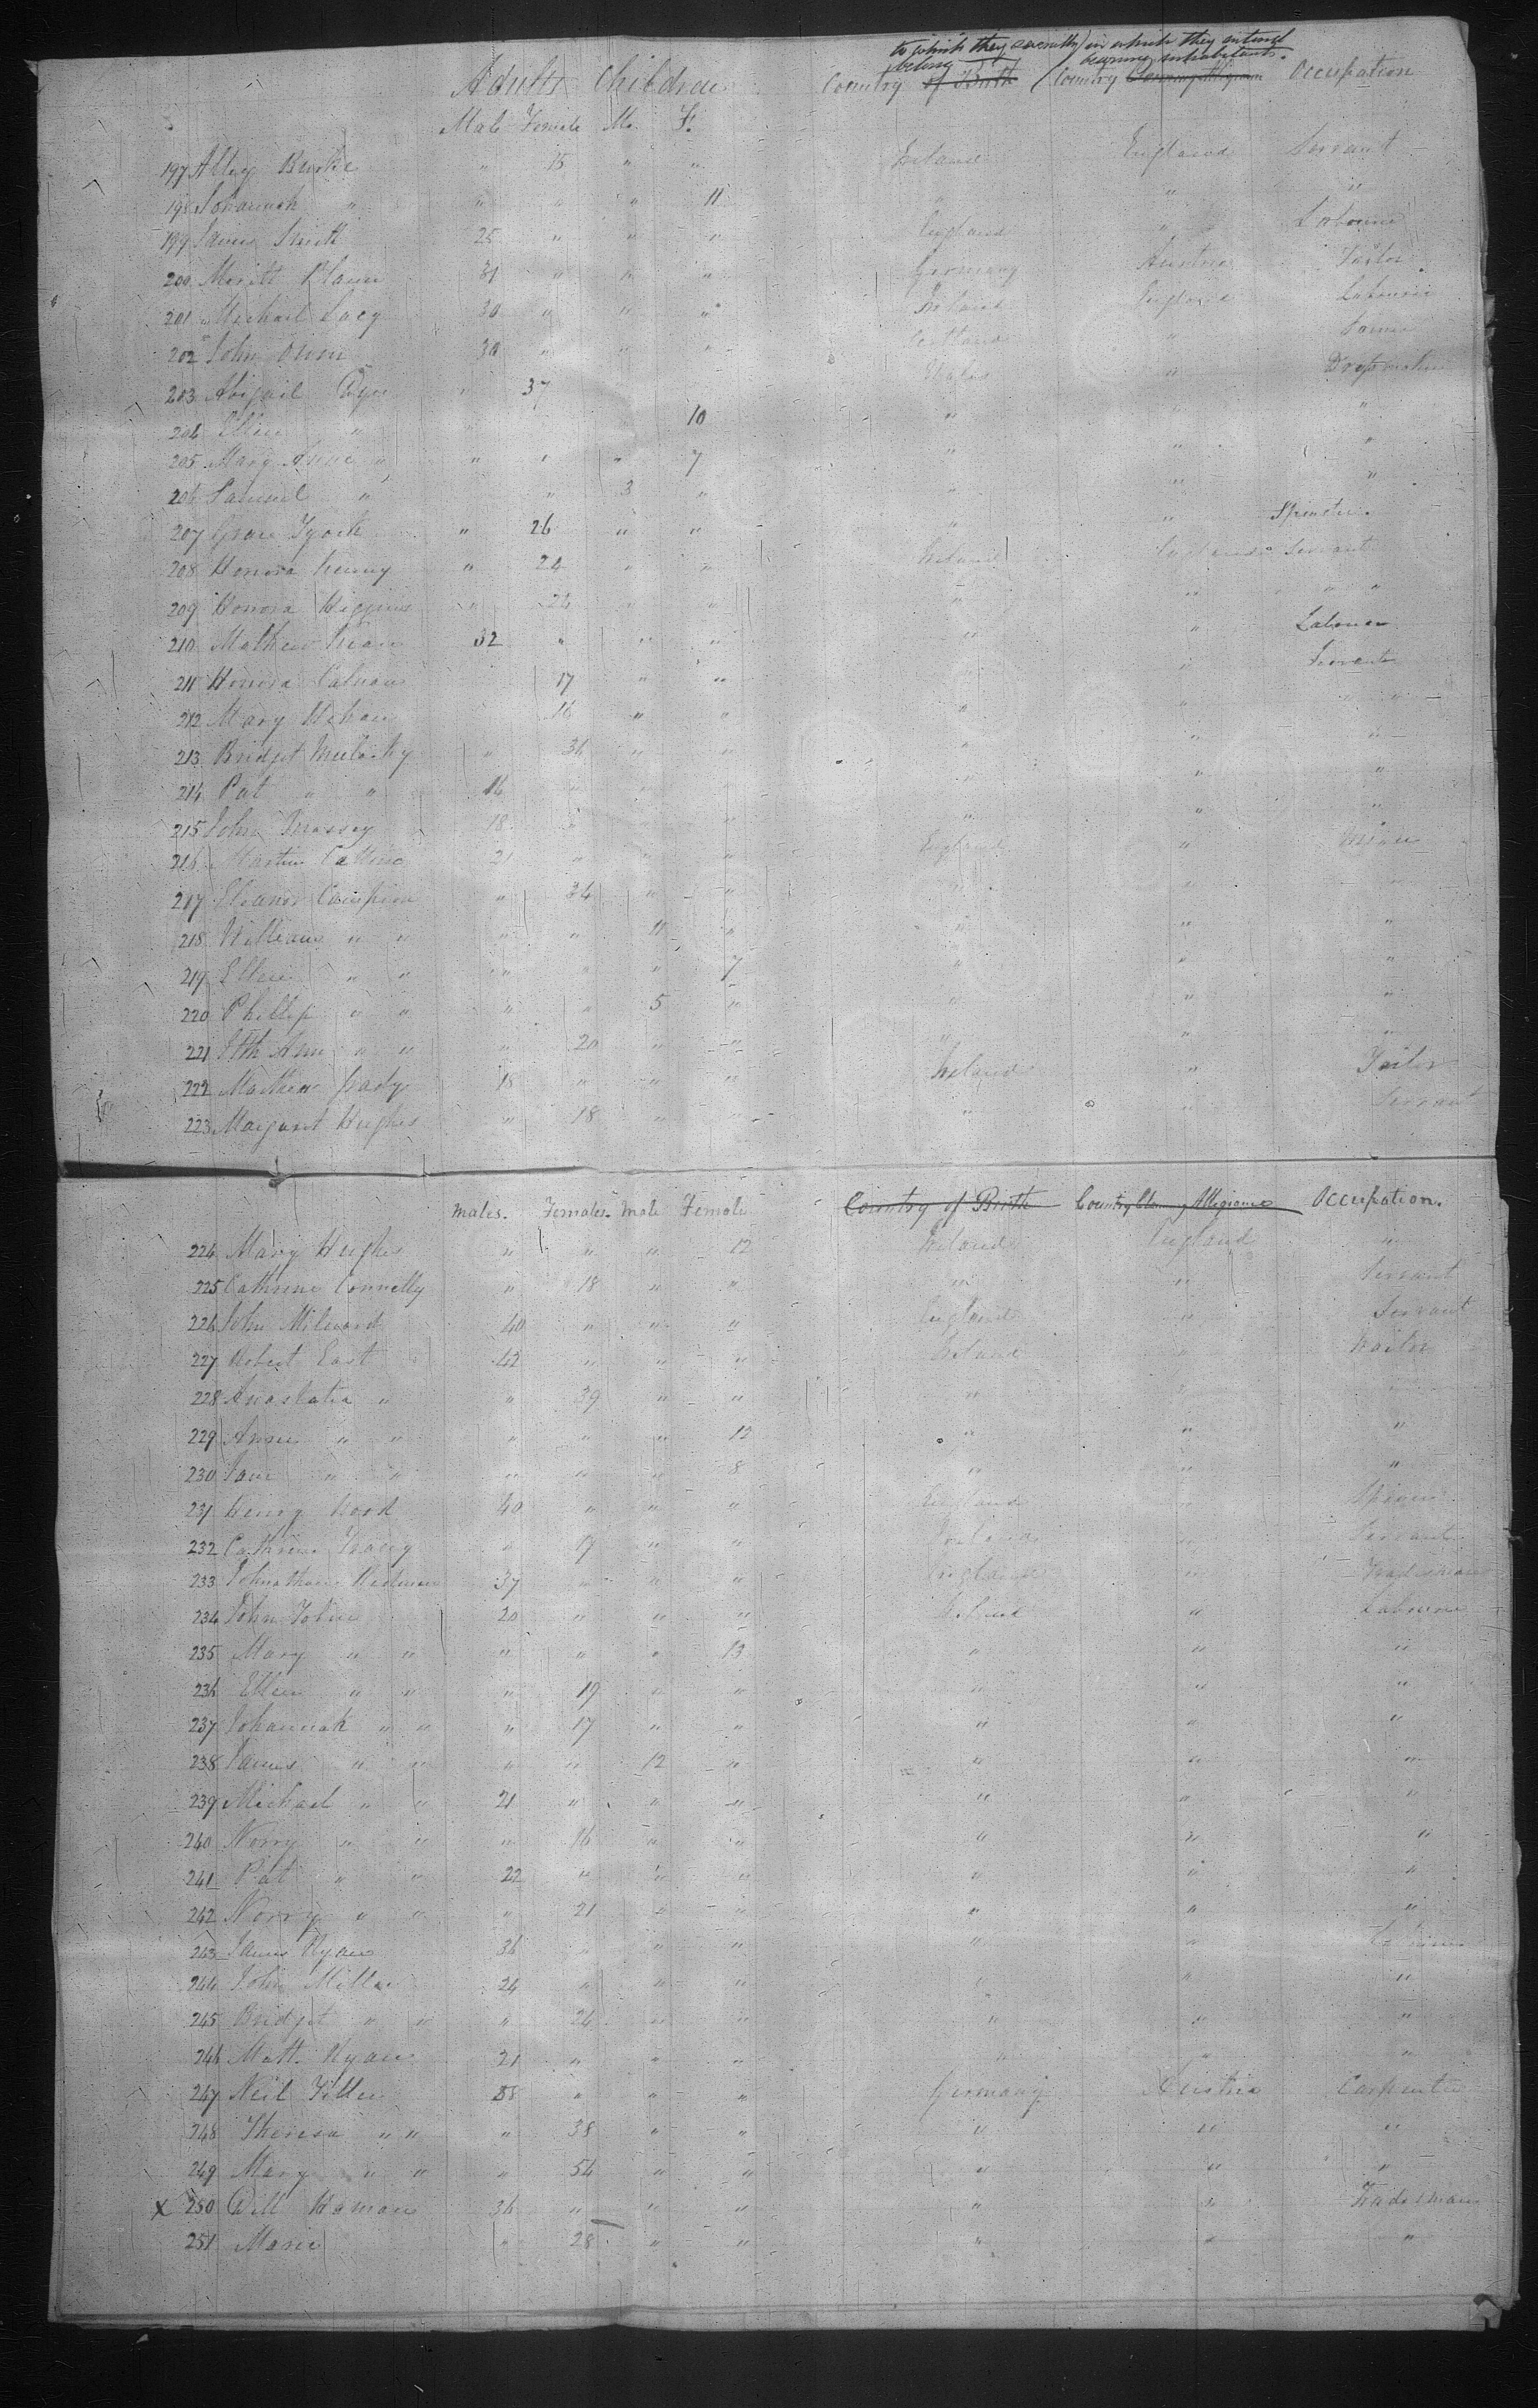 to which they severally / in which they intend
belong becoming inhabitants.
Adults Children Country of Birth Country Occupation
Male Female M. F.
197 Alley Burke " 15 " " Ireland England Servant
198 Johannah " " " " 11 " " "
199 James Smith 25 " " " England " Labourer
200 Moritz 31 " " " Germany Austria Tailor
201 Michael Lacy 30 " " " Ireland England Labourer
202 John Owen 30 " " " Scotland " Farmer
203 Abigail " 37 Wales " Dressmaker
204 Ellen " " 10 " " "
205 Mary Anne " " " " 7 " " "
206 Samuel " " 3 " " " "
207 Grace " 26 " " " " Spinster
208 Honora Kenny " 24 " " Ireland England Servant
209 Honora Higgins " 24 " " " " " "
210 Mathew Kean 32 " " " " " Labourer
211 Honora 17 " " " " Servant
212 Mary 16 " " " " "
213 Bridget Mulcahy " 36 " " " " "
214 Pat " " 16 " " " " " "
215 John Massey 18 " " " " " "
216 Martin 21 " " " England " Miner
217 Eleanor Campion " 34 " " " " "
218 William " " " " 11 " " " "
219 Ellen " " " " " 7 " " "
220 Phillip " " " " 5 " " " "
221 Eth Ann " " " 20 " " " " "
222 Mathew Grady 18 " " " Ireland " Tailor
223 Margaret Hughes " 18 " " " " Servant
Males. Females. Male Female Country of Birth Country Owning Allegiance Occupation.
224 Mary Hughes " " " 12 Ireland England "
225 Cathrine Connelly " 18 " " " " Servant
226 John Milward 40 " " " England " Servant
227 Robert East 42 " " " Ireland " Waiter
228 Anastatia " " 39 " " " " "
229 Annie " " " " " 12 " " "
230 Jane " " " " " 8 " " "
231 Henry Wood 40 " " " England "
232 Cathrine Tracey " 19 " " Ireland " Servant
233 Johnathan Redman 37 " " " England " Tradesman
234 John Tobin 20 " " " Ireland " Labourer
235 Mary " " " " " 13 " " "
236 Ellen " " " 19 " " " " "
237 Johannah " " " 17 " " " " "
238 James " " " " 12 " " " "
239 Michael " " 21 " " " " " "
240 Norry " " " 16 " " " " "
241 Pat " " 22 " " " " " "
242 Norry " " " 21 " " " " "
243 James Ryan 36 " " " " " Labourer
244 John Miller 24 " " " " " "
245 Bridget " " " 24 " " " " "
246 Matt. Ryan 21 " " " " " "
247 Neil 38 " " " Germany Austria Carpenter
248 Theresa " " " 38 " " " " "
249 Mary " " " 54 " " " " "
x 250 Will Homan 36 " " " " " Tradesman
251 Marie " 28 " " " " "